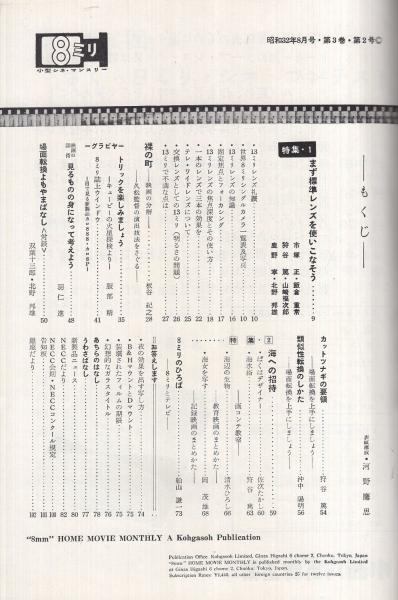 8ミリ
小型シネ・マンスリー
昭和32年8月号・第3巻・第2号©
もくじ
表紙構成・河野鷹思
特集・1
まず標準レンズを使いこなそう……9
市塚正・飯倉重常
狩谷篤・山崎福次郎
鹿野寧・北野邦雄
・13ミリレンズ礼讃 10
・世界8ミリシングルカメラ一覧表及写真 10
・13ミリレンズの知識 16
・固定焦点とフォーカシング 17
・13ミリレンズの焦点深度とその使い方 18
・一本のレンズで三本の効果を 22
・テレ・ワイドレンズについて 25
・交換レンズとしての13ミリ(明るさの問題) 26
・13ミリで不満な点は 27
裸の町
―映画の分析―
―久松監督の演出技法をさぐる―
板谷紀之 28
―グラビヤ―
トリックを楽しみましょう 35
―キューピーの火星探検より―
服部晴
8ミリ誌上ウインドウ 41
映画の街
見るものの身になって考えよう 48
羽仁進
場面転換よもやまばなし<対談> 50
双葉十三郎・北野邦雄
カットツナギの要領
―場面転換を上手にしましょう―
狩谷篤 54
類似性転換のしかた
―場面転換を上手にしましょう―
沖中陽明 56
特集・2
海への招待 59
・ぼくはデザイナー 佐次たかし 60
・海水浴 狩谷篤 63
―画コンテ教室―
・海辺の生物 清水ひろし 66
教育映画のまとめかた――
・海女を写す 岡茂雄 68
――記録映画のまとめかた――
8ミリのひろば
―8ミリとテレビ―
船山謙一 73
―お答えします―
・夜の効果を出す写し方 74
・B&HマウントとDマウント 75
・装填されたフィルムの期限 76
・幻想的なガラスタイトル 76
あちらのはなし 77
うわさばなし 78
新製品ニュース 80
NECCだより 82
NECC会則・NECCコンクール規定
告知板 100
銀座だより 102
"8mm" HOME MOVIE MONTHLY A Kohgasoh Publication
Publication Office: Kohgasoh Limited, Ginza Higashi 6 chome 2, Chuoku, Tokyo, Japan
"8mm" HOME MOVIE MONTHLY is published monthly by the Kohgasoh Limited
at Ginza Higashi 6 chome 2, Chuoku, Tokyo, Japan.
Subscription Rates: ¥1,440, all other foreign countries $5 for twelve issues.